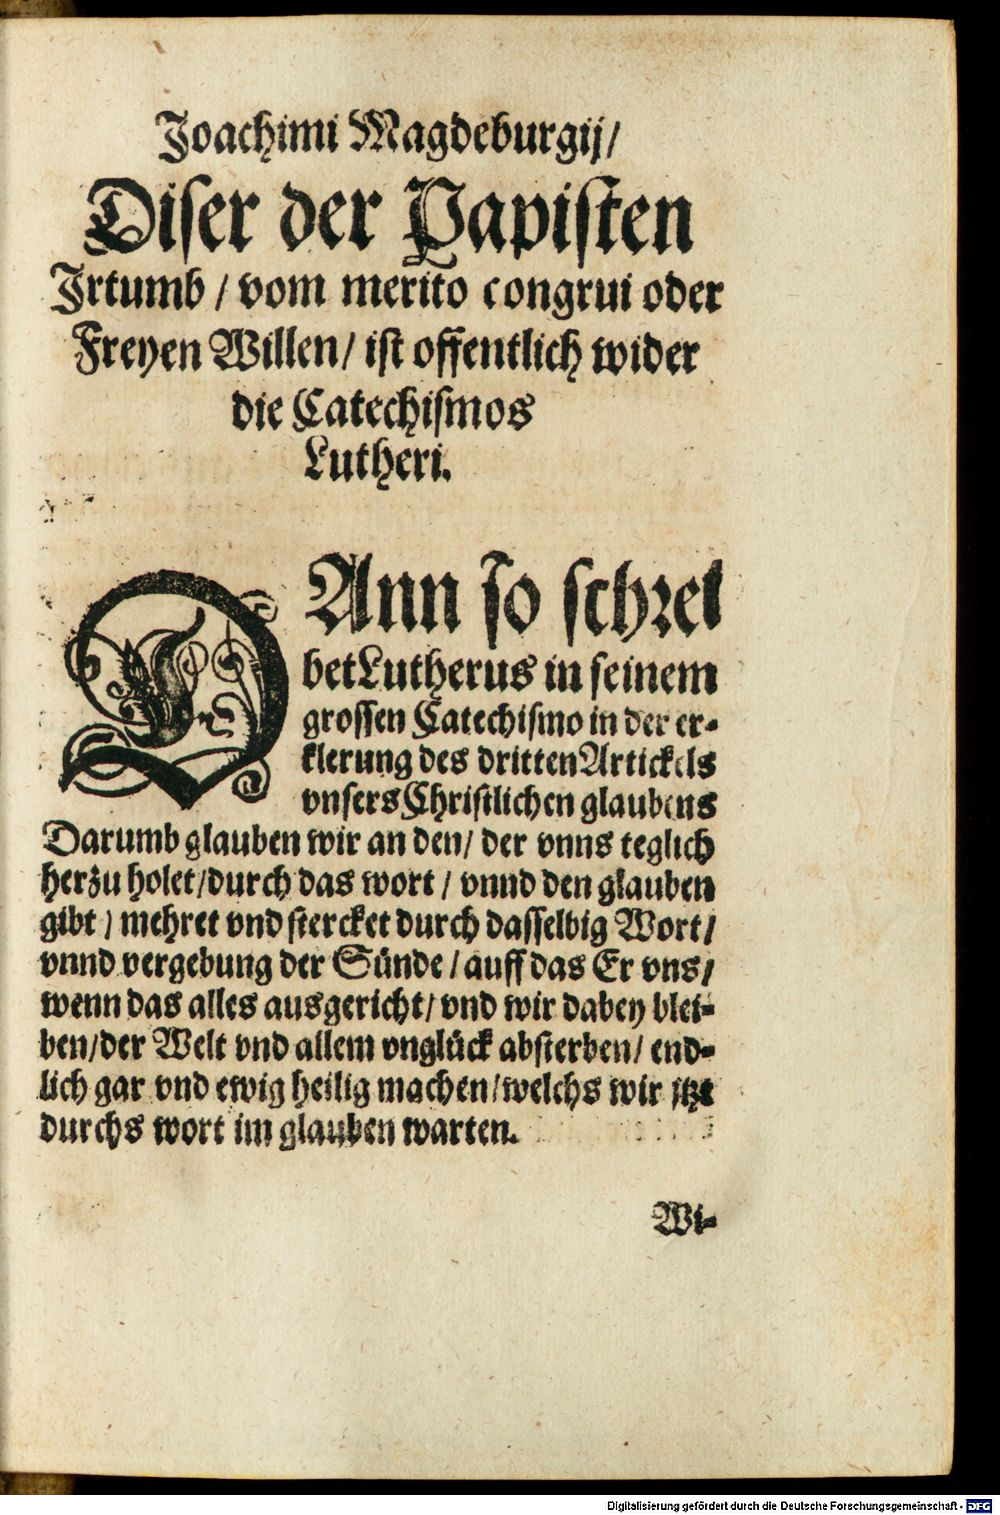 Joachimi Magdeburgij/
Diser der Papisten
Jrtumb / vom merito congrui oder
Freyen Willen / ist offentlich wider
die Catechismos
Lutheri.
DAnn so schrei
bet Lutherus in seinem
grossen Catechismo in der er-
klerung des dritten Artickels
vnsers Christlichen glaubens
Darumb glauben wir an den / der vnns teglich
herzu holet / durch das wort / vnnd den glauben
gibt / mehret vnd stercket durch dasselbig Wort /
vnnd vergebung der Sünde / auff das Er vns /
wenn das alles ausgericht / vnd wir dabey blei-
ben / der Welt vnd allem vnglück absterben / end-
lich gar vnd ewig heilig machen / welchs wir itzt
durchs wort im glauben warten.
Wi-
Digitalisierung gefördert durch die Deutsche Forschungsgemeinschaft - DFG